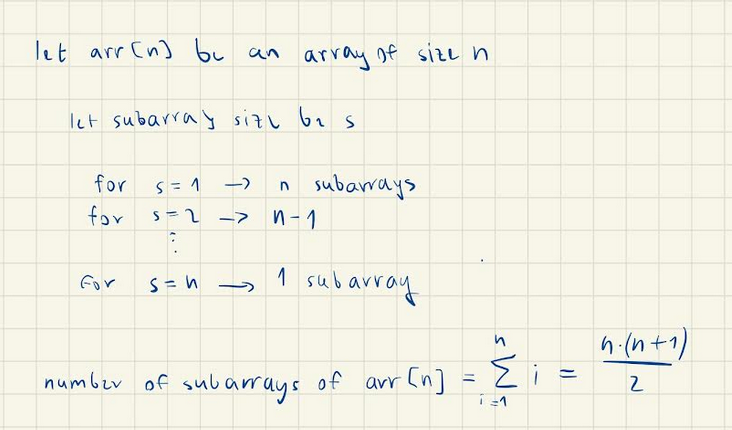 let arr[n] be an array of size n
let subarray size be s
for s = 1 → n subarrays
for s = 2 → n - 1
⋮
for s = n → 1 subarray
number of subarrays of arr[n] = \sum_{i=1}^{n} i = \frac{n·(n+1)}{2}